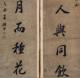 人與同飲
月而種花